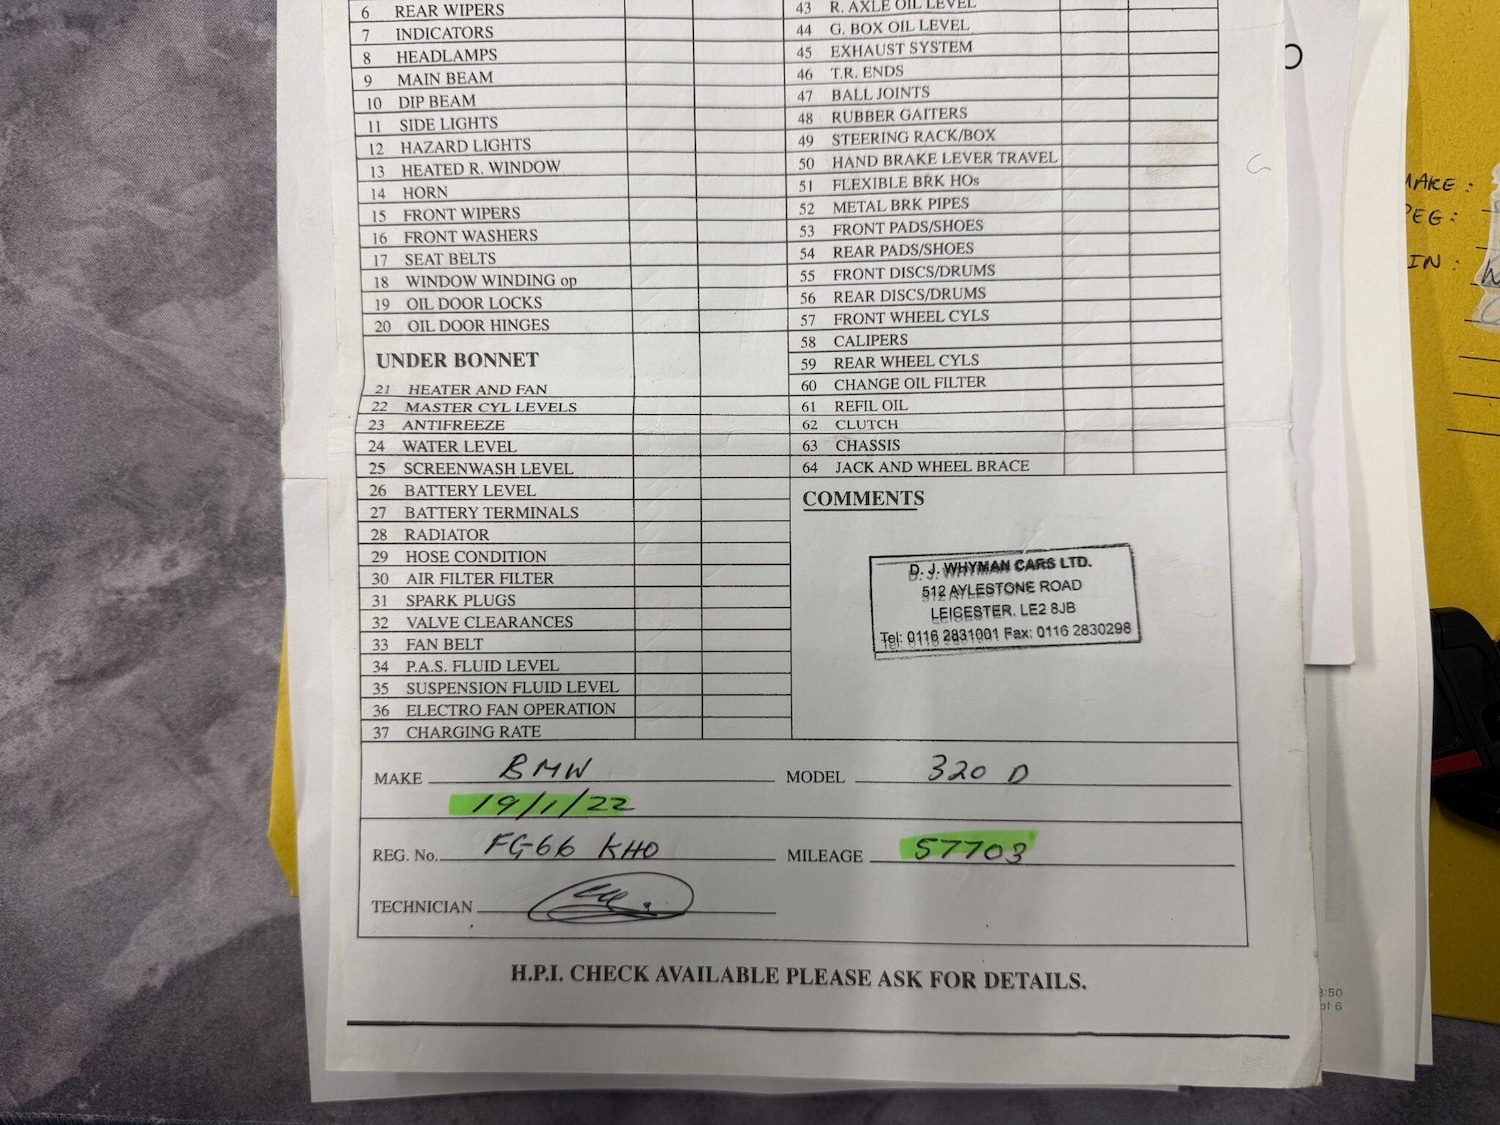 6 REAR WIPERS
7 INDICATORS
8 HEADLAMPS
9 MAIN BEAM
10 DIP BEAM
11 SIDE LIGHTS
12 HAZARD LIGHTS
13 HEATED R. WINDOW
14 HORN
15 FRONT WIPERS
16 FRONT WASHERS
17 SEAT BELTS
18 WINDOW WINDING op
19 OIL DOOR LOCKS
20 OIL DOOR HINGES
UNDER BONNET
21 HEATER AND FAN
22 MASTER CYL LEVELS
23 ANTIFREEZE
24 WATER LEVEL
25 SCREENWASH LEVEL
26 BATTERY LEVEL
27 BATTERY TERMINALS
28 RADIATOR
29 HOSE CONDITION
30 AIR FILTER FILTER
31 SPARK PLUGS
32 VALVE CLEARANCES
33 FAN BELT
34 P.A.S. FLUID LEVEL
35 SUSPENSION FLUID LEVEL
36 ELECTRO FAN OPERATION
37 CHARGING RATE
43 R. AXLE OIL LEVEL
44 G. BOX OIL LEVEL
45 EXHAUST SYSTEM
46 T.R. ENDS
47 BALL JOINTS
48 RUBBER GAITERS
49 STEERING RACK/BOX
50 HAND BRAKE LEVER TRAVEL
51 FLEXIBLE BRK HOs
52 METAL BRK PIPES
53 FRONT PADS/SHOES
54 REAR PADS/SHOES
55 FRONT DISCS/DRUMS
56 REAR DISCS/DRUMS
57 FRONT WHEEL CYLS
58 CALIPERS
59 REAR WHEEL CYLS
60 CHANGE OIL FILTER
61 REFIL OIL
62 CLUTCH
63 CHASSIS
64 JACK AND WHEEL BRACE
COMMENTS
D. J. WHYMAN CARS LTD.
512 AYLESTONE ROAD
LEICESTER. LE2 8JB
Tel: 0116 2831001 Fax: 0116 2830298
MAKE BMW MODEL 320 D
19/1/22
REG. No. FG66 KHO MILEAGE 57703
TECHNICIAN
H.P.I. CHECK AVAILABLE PLEASE ASK FOR DETAILS.
MAKE :
REG :
IN :
:50
of 6